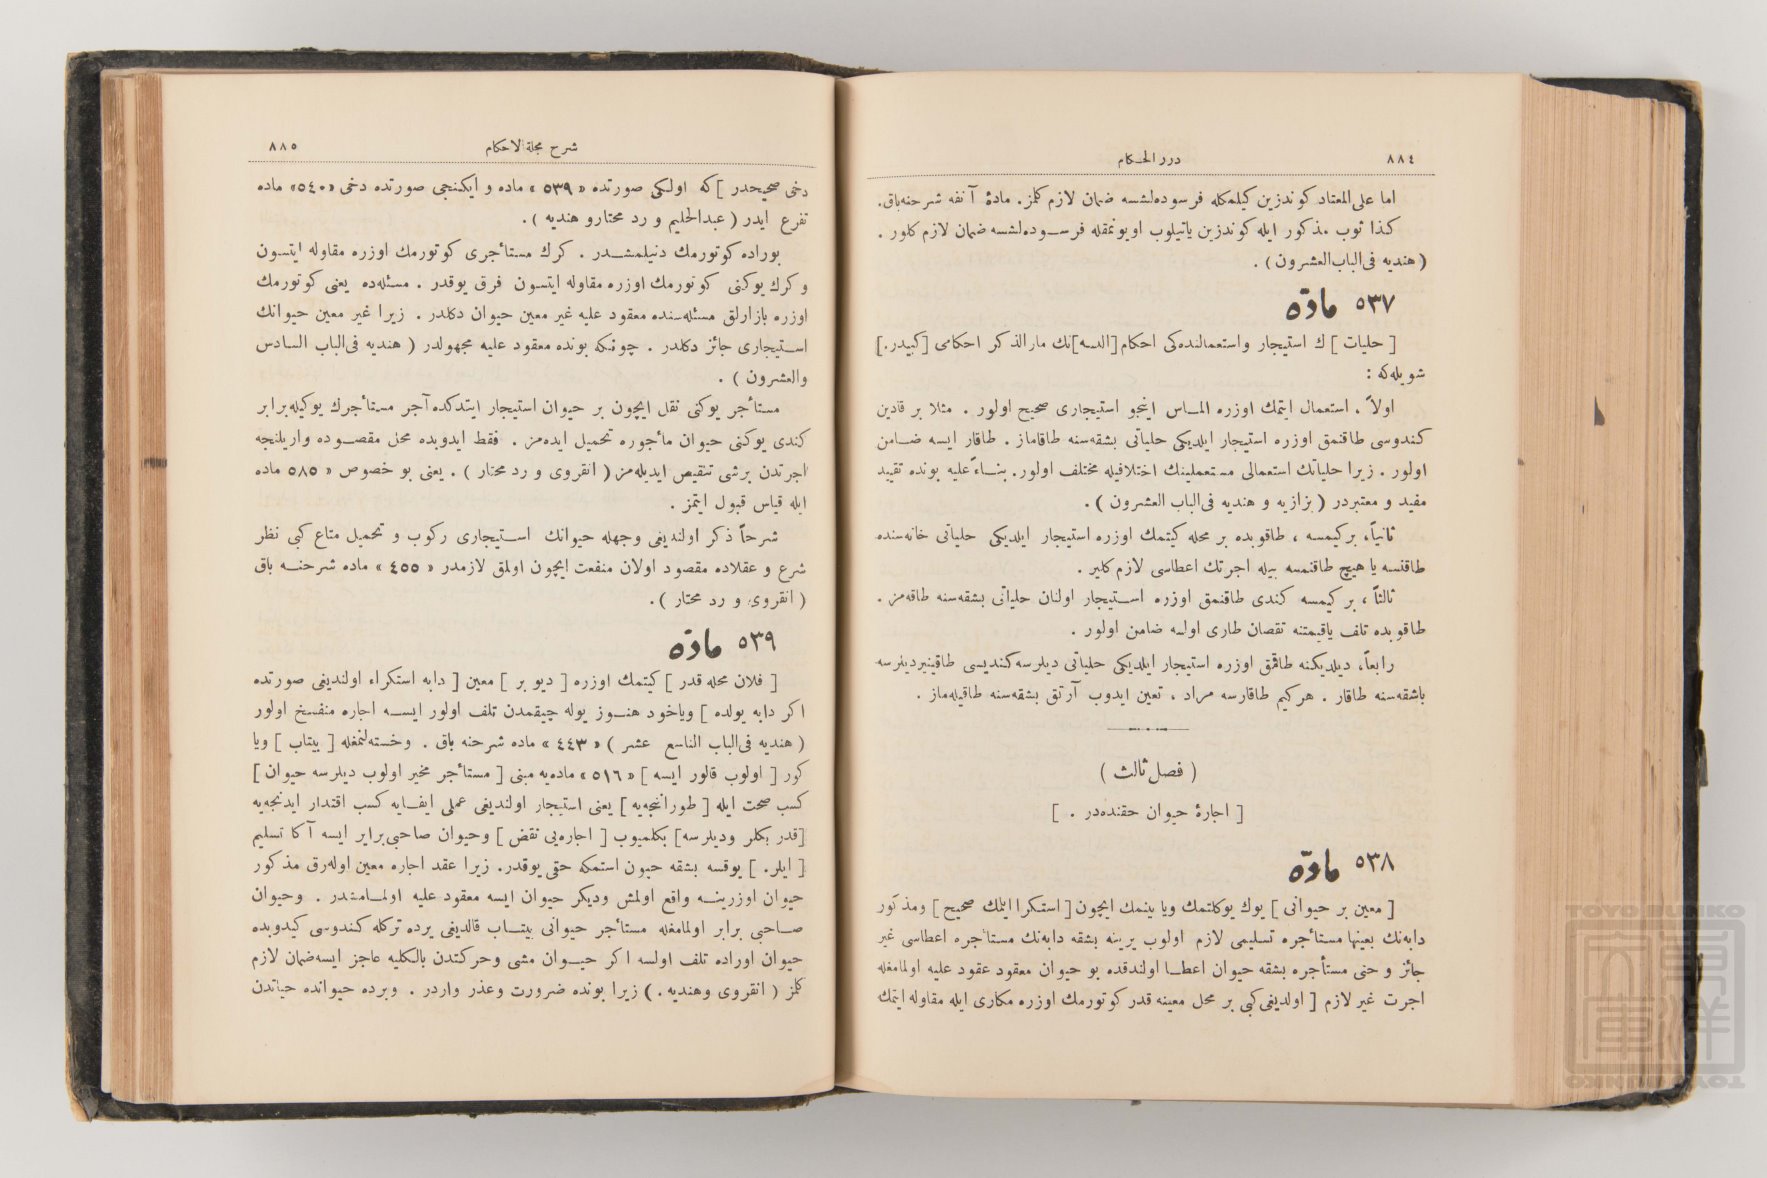 ٨٨٤
درر الحكام
اما على المعتاد كوندزين كيلمكله فرسوده‌لشسه ضمان لازم كلمز. مادۀ آنفه شرحنه‌باق.
كذا ثوب مذكور ايله كوندزين ياتيلوب اويونمقله فرسوده‌لشسه ضمان لازم كلور .
( هنديه فى‌الباب‌العشرون ) .
٥٣٧ مادّه
[ حليات ] ك استيجار واستعمالنده‌كى احكام [البسه] نك مارالذكر احكامى [كبيدر.]
شويله‌كه :
اولاً ، استعمال ايتمك اوزره الماس اينجو استيجارى صحيح اولور . مثلا بر قادين
كندوسى طاقنمق اوزره استيجار ايلديكى حلياتى بشقه‌سنه طاقاماز . طاقار ايسه ضامن
اولور . زيرا حلياتك استعمالى مستعملينك اختلافيله مختلف اولور. بناءً عليه بونده تقييد
مفيد و معتبردر ( بزازيه و هنديه فى‌الباب العشرون ) .
ثانياً، بركيمسه ، طاقوبده بر محله كيتمك اوزره استيجار ايلديكى حلياتى خانه‌سنده
طاقنسه يا هيچ طاقنمسه بيله اجرتك اعطاسى لازم كلير .
ثالثاً ، بر كيمسه كندى طاقنمق اوزره استيجار اولنان حلياتى بشقه‌سنه طاقه‌مز .
طاقوبده تلف ياقيمتنه نقصان طارى اولسه ضامن اولور .
رابعاً، ديلديكنه طاقمق اوزره استيجار ايلديكى حلياتى ديلرسه كنديسى طاقينيرديلرسه
باشقه‌سنه طاقار . هركيم طاقارسه مراد ، تعين ايدوب آرتق بشقه‌سنه طاقيله‌ماز .
( فصل ثالث )
[ اجارۀ حيوان حقنده‌در . ]
٥٣٨ مادّه
[ معين بر حيوانى ] يوك يوكلتمك ويا بينمك ايچون [ استكرا ايتمك صحيح ] ومذكور
دابه‌نك بعينها مستأجره تسليمى لازم اولوب يرينه بشقه دابه‌نك مستأجره اعطاسى غير
جائز و حتى مستأجره بشقه حيوان اعطا اولندقده بو حيوان معقود عقود عليه اولمامغله
اجرت غير لازم [ اولديغى كبى بر محل معينه قدر كوتورمك اوزره مكارى ايله مقاوله ايتمك
شرح مجلة الاحكام
٨٨٥
دخى صحيحدر ] كه اولكى صورتده « ٥٣٩ » ماده و ايكنجى صورتده دخى «٥٤٠» ماده
تفرع ايدر ( عبدالحليم و رد محتارو هنديه ) .
بوراده كوتورمك دنيلمشدر . كرك مستأجرى كوتورمك اوزره مقاوله ايتسون
و كرك يوكنى كوتورمك اوزره مقاوله ايتسون فرق يوقدر . مسئله‌ده يعنى كوتورمك
اوزره بازارلق مسئله‌سنده معقود عليه غير معين حيوان دكلدر . زيرا غير معين حيوانك
استيجارى جائز دكلدر . چونكه بونده معقود عليه مجهولدر ( هنديه فى‌الباب السادس
والعشرون ) .
مستأجر يوكنى نقل ايچون بر حيوان استيجار ايتدكده آجر مستأجرك يوكيله برابر
كندى يوكنى حيوان مأجوره تحميل ايده‌مز . فقط ايدوبده محل مقصوده واريلنجه
اجرتدن برشى تنقيص ايديله‌مز ( انقروى و رد محتار ) . يعنى بو خصوص « ٥٨٥ ماده
ايله قياس قبول ايتمز .
شرحاً ذكر اولنديغى وجهله حيوانك استيجارى ركوب و تحميل متاع كبى نظر
شرع و عقلاده مقصود اولان منفعت ايچون اولمق لازمدر « ٤٥٥ » ماده شرحنه باق
( انقروى و رد محتار ) .
٥٣٩ مادّه
[ فلان محله قدر ] كيتمك اوزره [ ديو بر ] معين [ دابه استكراء اولنديغى صورتده
اكر دابه يولده ] وياخود هنوز يوله چيقمدن تلف اولور ايسه اجاره منفسخ اولور
( هنديه فى‌الباب التاسع عشر ) « ٤٤٣ » ماده شرحنه باق . وخسته‌لنمغله [ بيتاب ] ويا
كور [ اولوب قالور ايسه ] « ٥١٦ » ماده‌يه مبنى [ مستأجر مخير اولوب ديلرسه حيوان ]
كسب صحت ايله [ طورانجه‌يه ] يعنى استيجار اولنديغى عملى ايفايه كسب اقتدار ايدنجه‌يه
[قدر بكلر وديلرسه] بكلميوب [ اجاره‌يى نقض ] وحيوان صاحبى برابر ايسه آكا تسليم
[ ايلر. ] يوقسه بشقه حيون استمكه حقى يوقدر. زيرا عقد اجاره معين اوله‌رق مذكور
حيوان اوزرينه واقع اولمش وديكر حيوان ايسه معقود عليه اولمامشدر . وحيوان
صاحبى برابر اولمامغله مستأجر حيوانى بيتاب قالديغى يرده تركله كندوسى كيدوبده
حيوان اوراده تلف اولسه اكر حيوان مشى وحركتدن بالكليه عاجز ايسه‌ضمان لازم
كلمز ( انقروى وهنديه . ) زيرا بونده ضرورت وعذر واردر . وبرده حيوانده حياتدن
TOYO BUNKO
東洋文庫
TOYO BUNKO